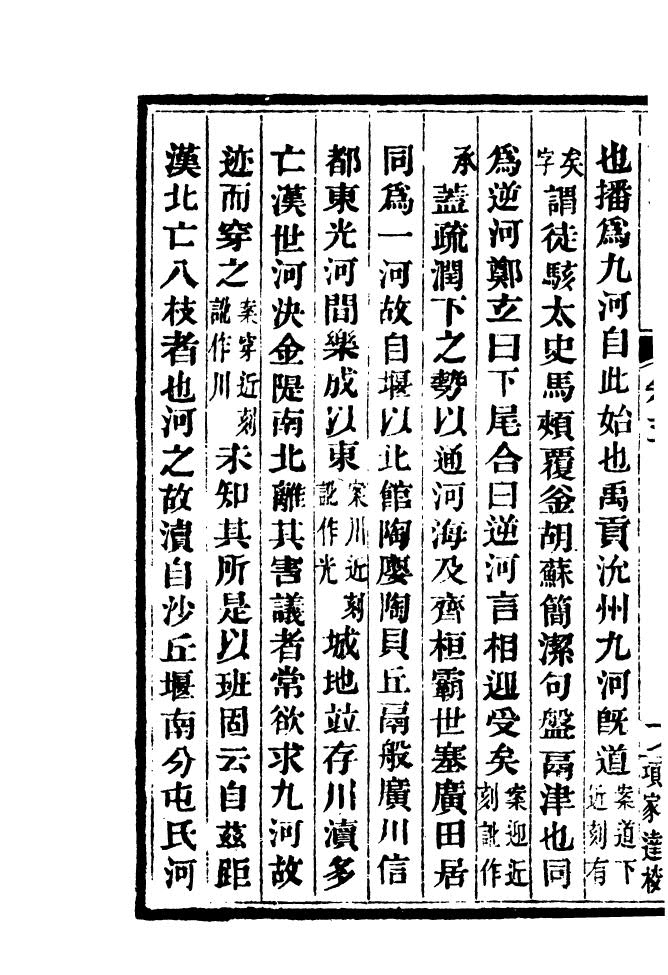 也播爲九河自此始也禹貢沇州九河旣道案道下近刻有
矣字謂徒駭太史馬頰覆釡胡蘇簡潔句盤鬲津也同
爲逆河鄭玄曰下尾合曰逆河言相迎受矣案迎近刻訛作
承蓋疏潤下之勢以通河海及齊桓霸世塞廣田居
同爲一河故自堰以北館陶廮陶貝丘鬲般廣川信
都東光河間樂成以東案川近刻訛作光城地竝存川瀆多
亡漢世河決金隄南北離其害議者常欲求九河故
迹而穿之案穿近刻訛作川未知其所是以班固云自茲距
漢北亡八枝者也河之故瀆自沙丘堰南分屯氏河
項家達校